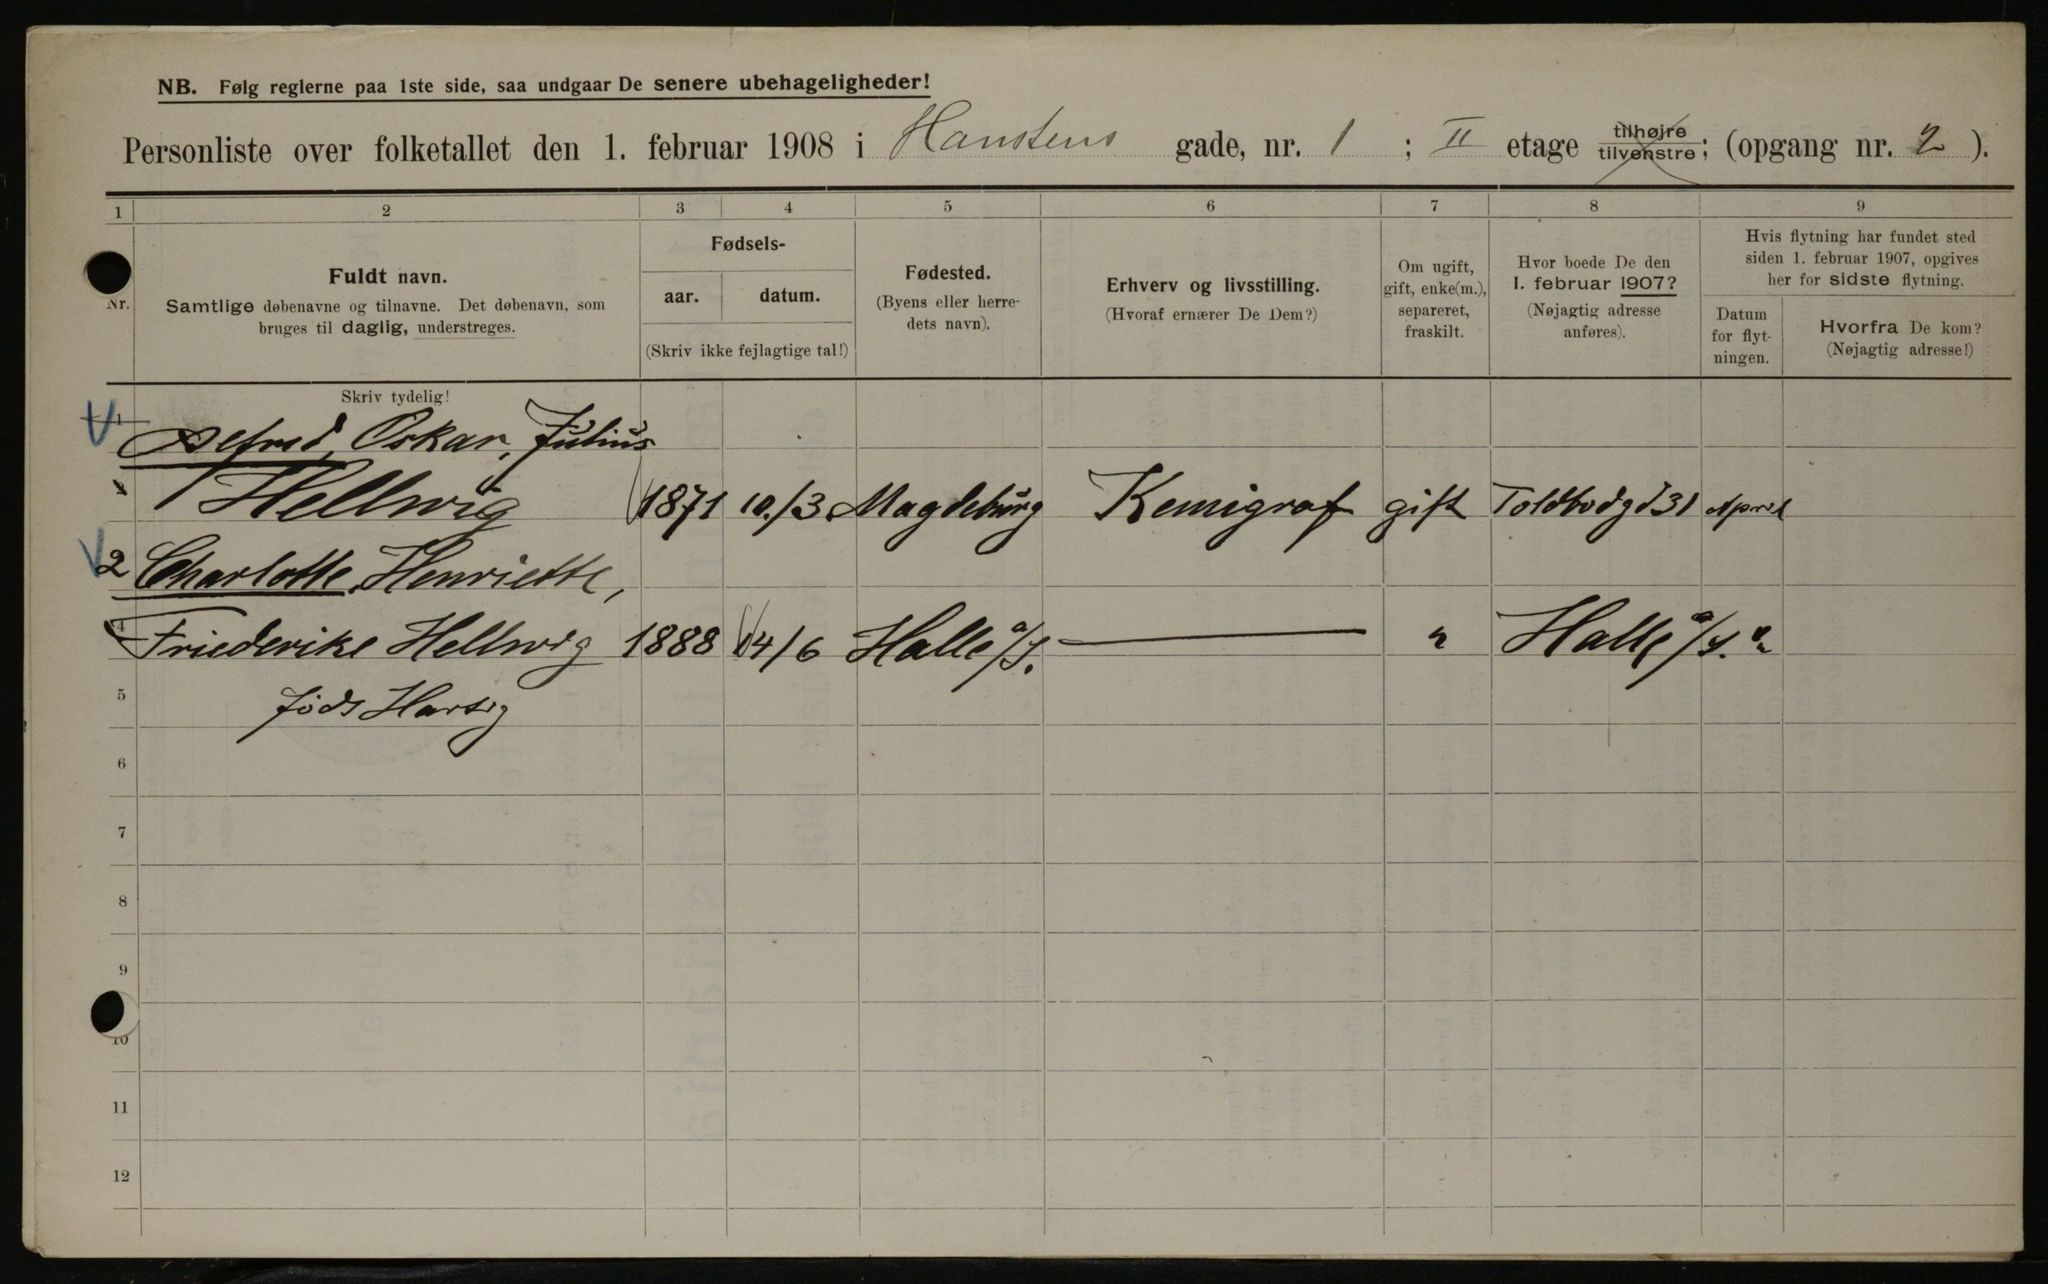 NB. Følg reglerne paa 1ste side, saa undgaar De senere ubehageligheder!
Personliste over folketallet den 1. februar 1908 i Hanstens gade, nr. 1 ; II etage tilhøjre tilvenstre; (opgang nr. 2 ).
1 2 3 4 5 6 7 8 9
Nr.
Fuldt navn.
Samtlige døbenavne og tilnavne. Det døbenavn, som
bruges til daglig, understreges.
Fødsels-
aar. datum.
(Skriv ikke fejlagtige tal!)
Fødested.
(Byens eller herre-
dets navn).
Erhverv og livsstilling.
(Hvoraf ernærer De Dem?)
Om ugift,
gift, enke(m.),
separeret,
fraskilt.
Hvor boede De den
1. februar 1907?
(Nøjagtig adresse
anføres).
Hvis flytning har fundet sted
siden 1. februar 1907, opgives
her for sidste flytning.
Datum
for flyt-
ningen.
Hvorfra De kom?
(Nøjagtig adresse!)
Skriv tydelig!
1 Alfred, Oskar, Julius
Hellwig 1871 10./3 Magdeburg Kemigraf gift Toldbodgd 31 April
2 Charlotte Henriette,
4 Friederike Hellwig 1888 14/6 Halle a/S. " Halle a/S. "
5 føds Harsig
6
7
8
9
10
11
12